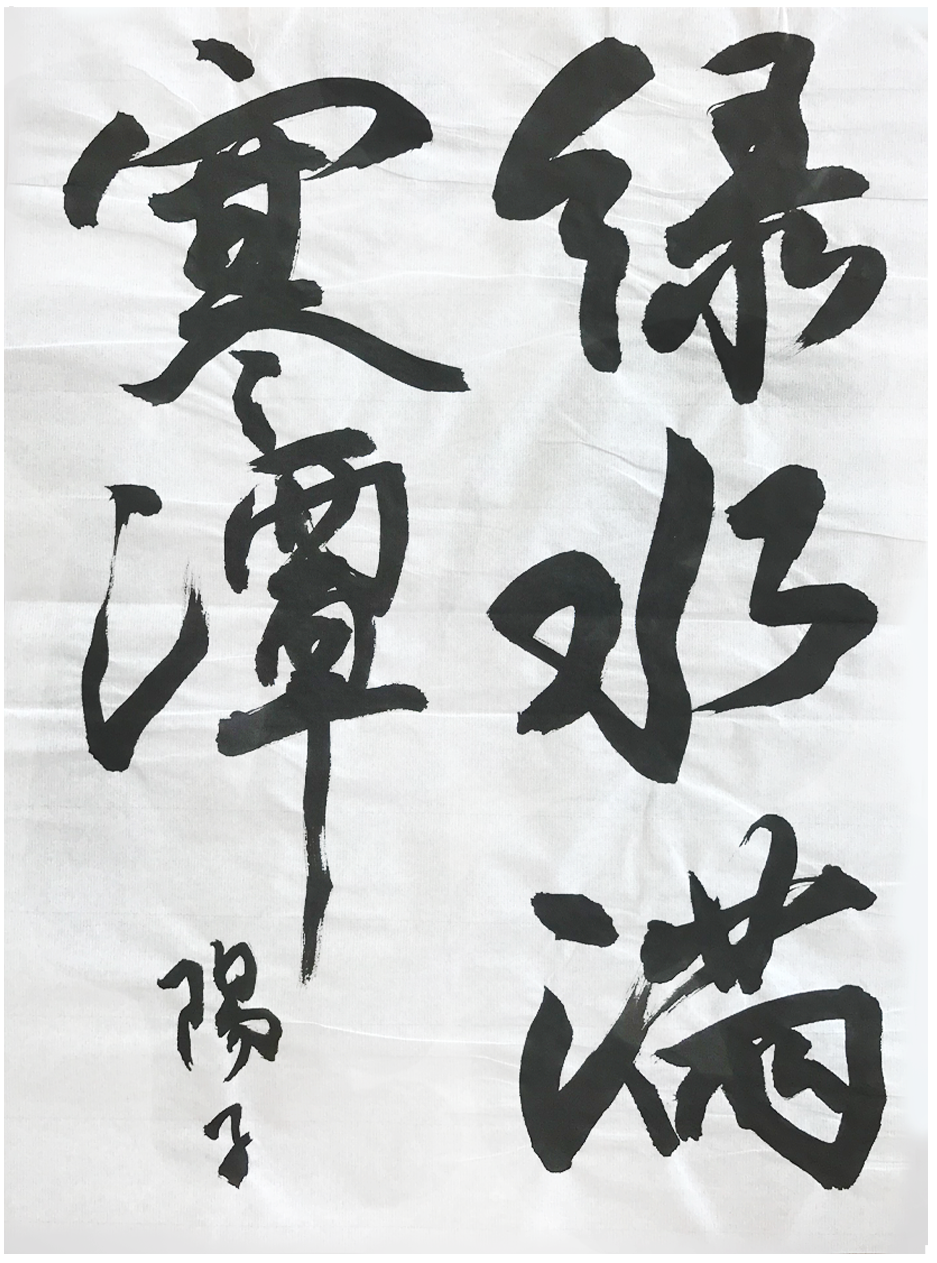 緑水満
寒潭
陽子